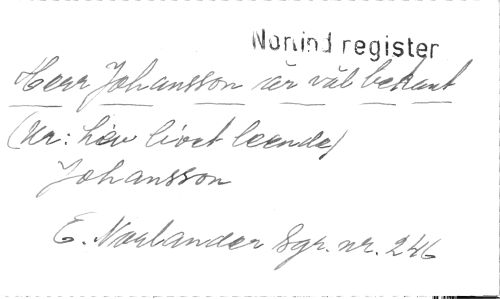 Nomind register
Herr Johansson är väl bekant
(Ur: hör livet leende)
Johansson
E. Norlander Sgr. nr. 246